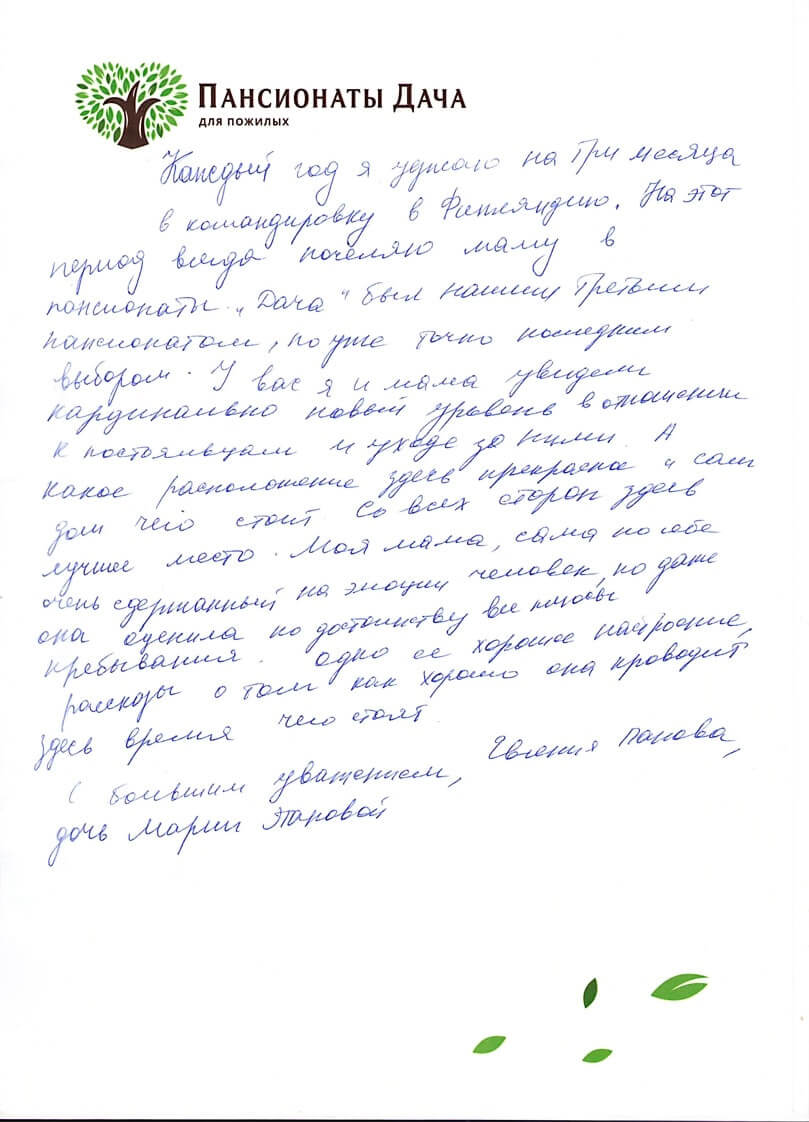 ПАНСИОНАТЫ ДАЧА
ДЛЯ ПОЖИЛЫХ
Каждый год я уезжаю на три месяца
в командировку в Финляндию. На этот
период всегда поселяю маму в
пансионаты. „Дача“ был нашим третьим
пансионатом, но уже точно последним
выбором. У вас я и мама увидели
кардинально новый уровень в отношении
к постояльцам и уходе за ними. А
какое расположение здесь прекрасное и сам
дом чего стоит. Со всех сторон здесь
лучшее место. Моя мама, сама по себе
очень сдержанный на эмоции человек, но даже
она оценила по достоинству все плюсы
пребывания. Одно ее хорошее настроение,
рассказы о том как хорошо она проводит
здесь время чего стоят.
С большим уважением, Евгения Панова,
дочь Марии